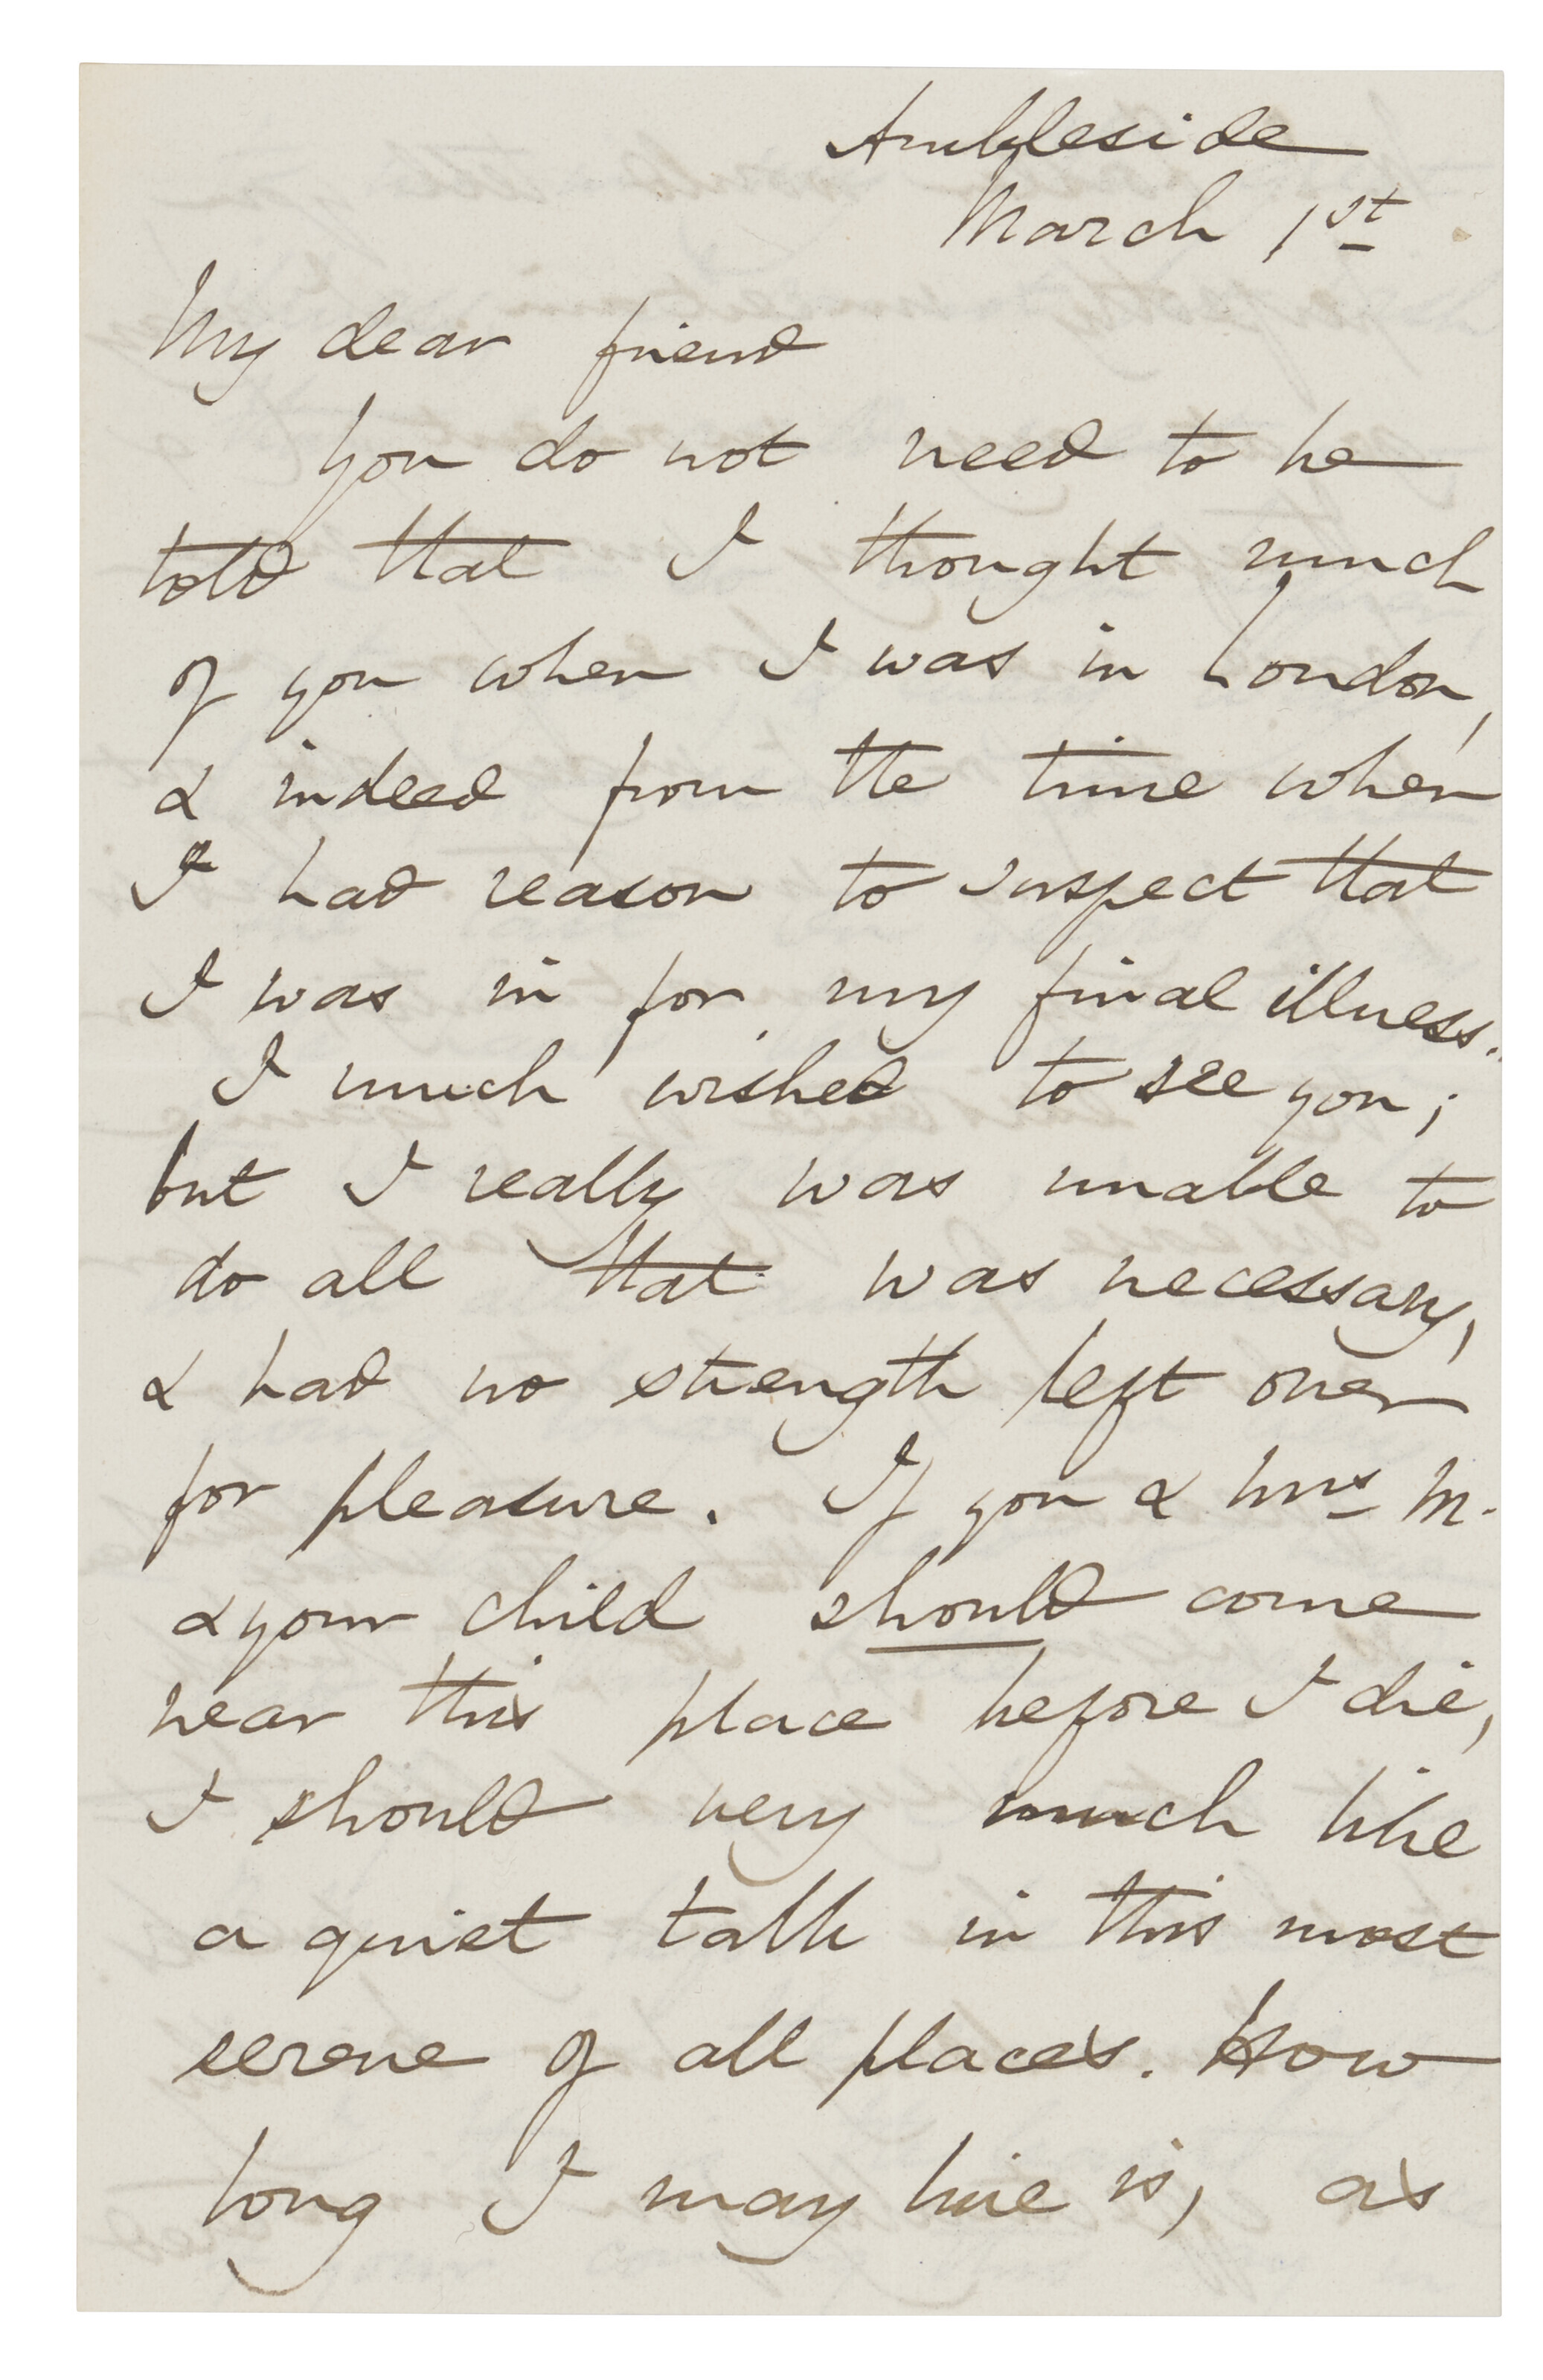 Ambleside
March 1st
My dear friend
You do not need to be
told that I thought much
of you when I was in London,
& indeed from the time when
I had reason to suspect that
I was in for my final illness.
I much wished to see you;
but I really was unable to
do all that was necessary,
& had no strength left over
for pleasure. If you & Mrs M.
& your child should come
near this place before I die,
I should very much like
a quiet talk in this most
serene of all places. How
long I may live is, as